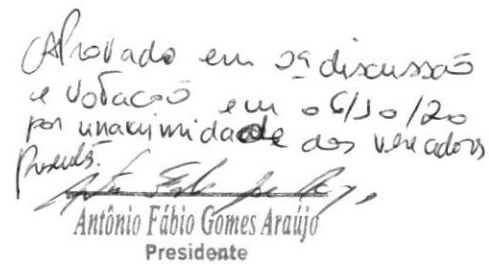 Aprovado em 2ª discussão
e votação em 06/10/20
por unanimidade dos vereadores
Presentes.
Antônio Fábio Gomes Araújo
Presidente